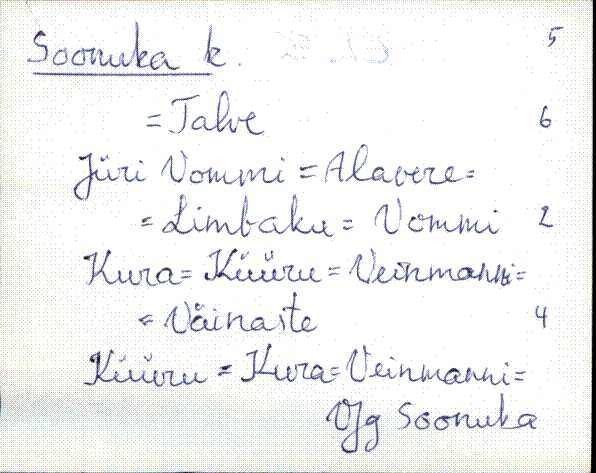 Soonuka k. 5
= Talve 6
Jüri Vommi = Alavere =
= Limbaku = Vommi 2
Kura = Küüru = Veinmanni =
= Väinaste 4
Küüru = Kura = Veinmanni =
Soonuka